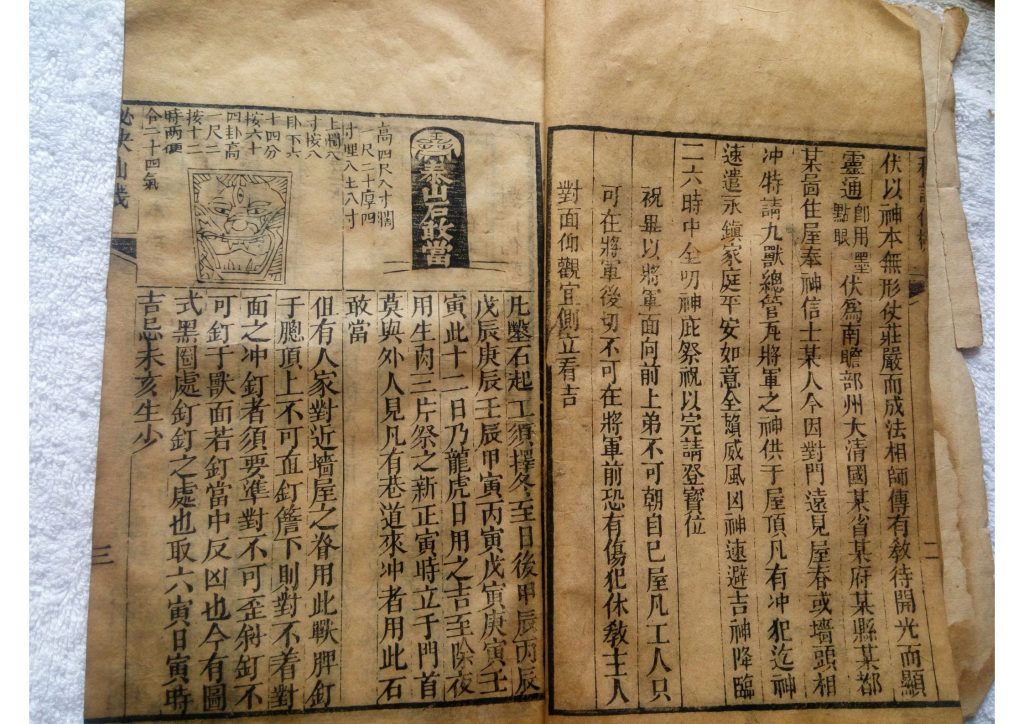 伏以神本無形仗莊嚴而成法相師傳有教待開光而顯
靈通卽用墨點眼伏爲南瞻部州大清國某省某府某縣某都
某啚住屋奉神信士某人今因對門遠見屋春或墻頭相
冲特請九獸總管瓦將軍之神供于屋頂凡有冲犯迄神
速遣永鎮家庭平安如意全賴威風凶神速避吉神降臨
二六時中全叨神庇祭祝以完請登寶位
祝畢以將軍面向前上弟不可朝自巳屋凡工人只
可在將軍後切不可在將軍前恐有傷犯休教主人
對面仰觀宜側立看吉
二
泰山石敢當
高四尺八寸濶
一尺二寸厚四
寸埋入土八寸
凡鑿石起工須擇冬至日後甲辰丙辰
戊辰庚辰壬辰甲寅丙寅戊寅庚寅壬
寅此十二日乃龍虎日用之吉至除夜
用生肉三片祭之新正寅時立于門首
莫與外人見凡有巷道來冲者用此石
敢當
上濶八
寸按八
卦下六
十四分
按六十
四卦高
一尺二
按十二
時兩便
合二十四氣
但有人家對近墻屋之脊用此獸牌釘
于腮頂上不可直釘簷下則對不着對
面之冲釘者須要準對不可歪斜釘不
可釘于獸面若釘當中反凶也今有圖
式黑圈處釘釘之處也取六寅日寅時
吉忌未亥生少
三